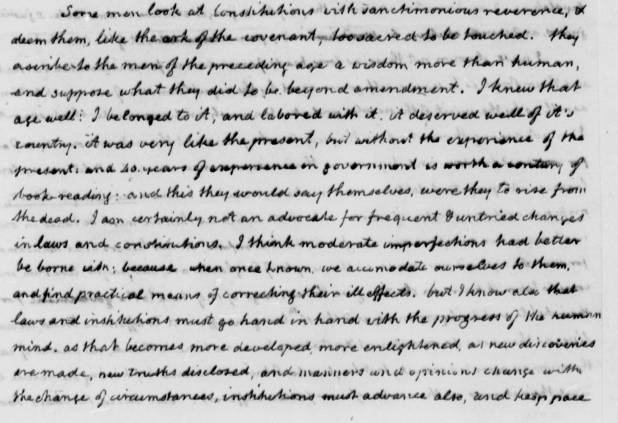 Some men look at Constitutions with sanctimonious reverence, &
deem them, like the ark of the covenant, too sacred to be touched. they
ascribe to the men of the preceding age a wisdom more than human,
and suppose what they did to be beyond amendment. I knew that
age well: I belonged to it, and labored with it. it deserved well of it's
country. it was very like the present, but without the experience of the
present: and 40. years of experience in government is worth a century of
book-reading: and this they would say themselves, were they to rise from
the dead. I am certainly not an advocate for frequent & untried changes
in laws and constitutions. I think moderate imperfections had better
be borne with; because when once known, we accomodate ourselves to them,
and find practical means of correcting their ill effects. but I know also that
laws and institutions must go hand in hand with the progress of the human
mind. as that becomes more developed, more enlightened, as new discoveries
are made, new truths disclosed, and manners and opinions change with
the change of circumstances, institutions must advance also, and keep pace